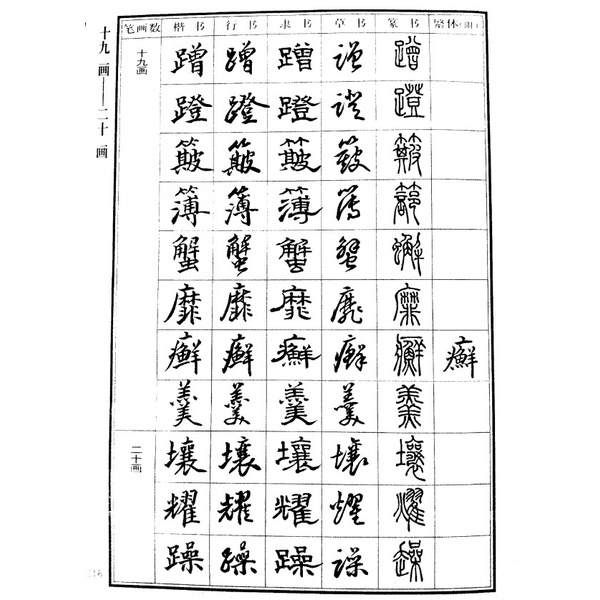 十九画——二十画
笔画数 楷书 行书 隶书 草书 篆书 繁体
十九画 蹭 蹭 蹭 蹭 蹭
蹬 蹬 蹬 蹬 蹬
簸 簸 簸 簸 簸
簿 簿 簿 簿 簿
蟹 蟹 蟹 蟹 蟹
靡 靡 靡 靡 靡
癣 癣 癬 癣 癬 癬
羹 羹 羹 羹 羹
二十画 壤 壤 壤 壤 壤
耀 耀 耀 耀 耀
躁 躁 躁 躁 躁